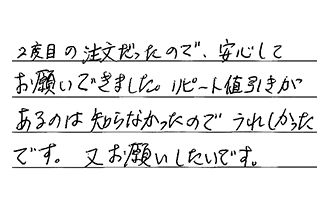 2度目の注文だったので、安心して
お願いできました。リピート値引きが
あるのは知らなかったのでうれしかった
です。又お願いしたいです。